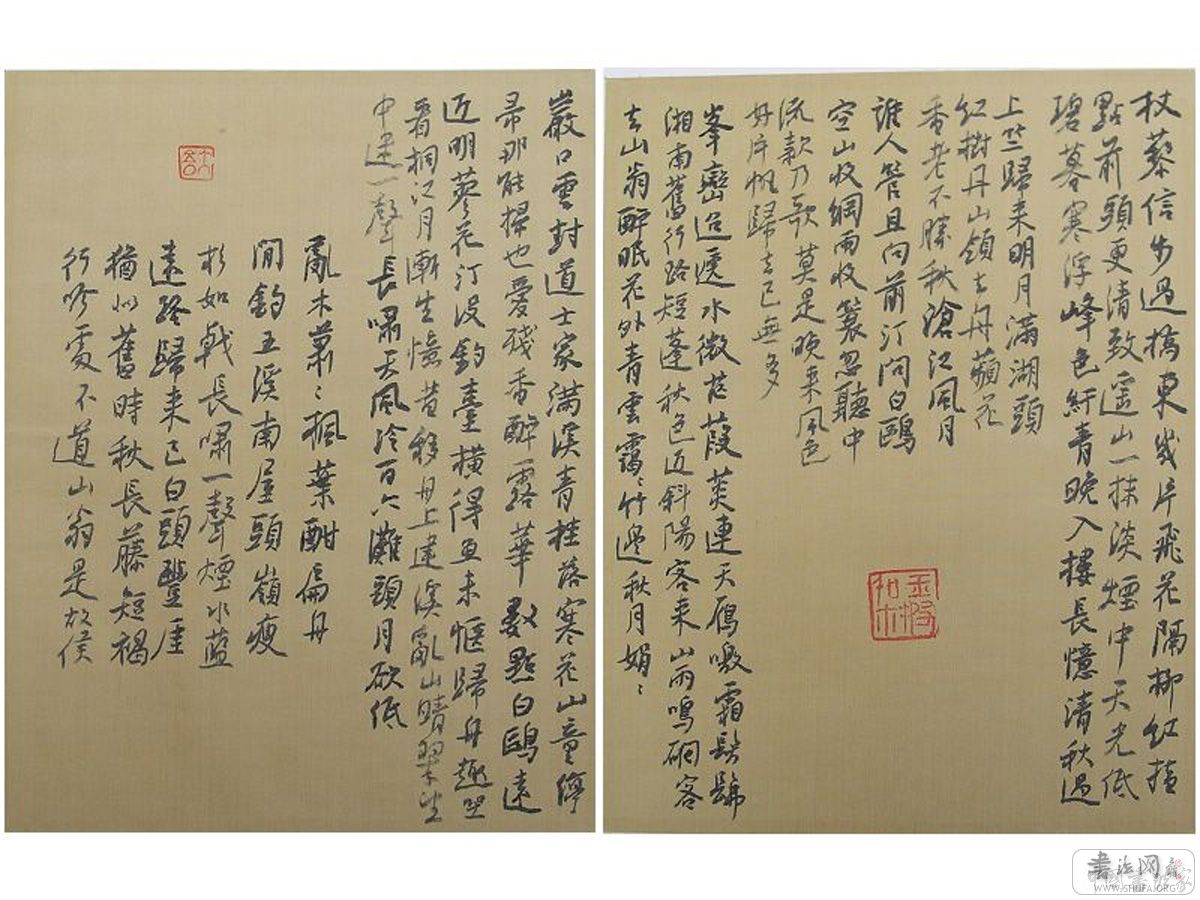 杖藜信步過橋東幾片飛花隔柳紅撞
點前頭更清致遥山一抹淡煙中天光低
碧暮寒浮峰色紆青晚入樓長憶清秋過
上竺歸来明月滿湖頭
红樹丹山領去舟蘋花
香老不勝秋滄江風月
誰人管且向前汀問白鷗
空山收網雨收蓑忽聽中
流欸乃歌莫是晚来風色
好片帆歸去已無多
峯巒迢遞水微茫葭菼連天雁噭霜髣髴
湘南舊行路短蓬秋色近斜陽客来山雨鳴磵客
去山翁醉眠花外青雲靄〻竹邊秋月娟〻
巖口雲封道士家滿溪青桂落寒花山童停
帚那能掃也愛殘香醉露華數點白鷗遠
近明蓼花汀没釣臺横得魚未愜歸舟趣坐
看桐江月漸生憶昔移舟上建溪亂山晴翠望
中迷一聲長嘯天風冷百六灘頭月欲低
亂木蕭〻楓葉酣扁舟
閒釣五溪南屋頭嶺瘦
杉如戟長嘯一聲煙水藍
遠路歸来已白頭豐厓
猶似舊時秋長藤短褐
行吟處不道山翁是故侯
書法网
WWW.SHUFA.ORG